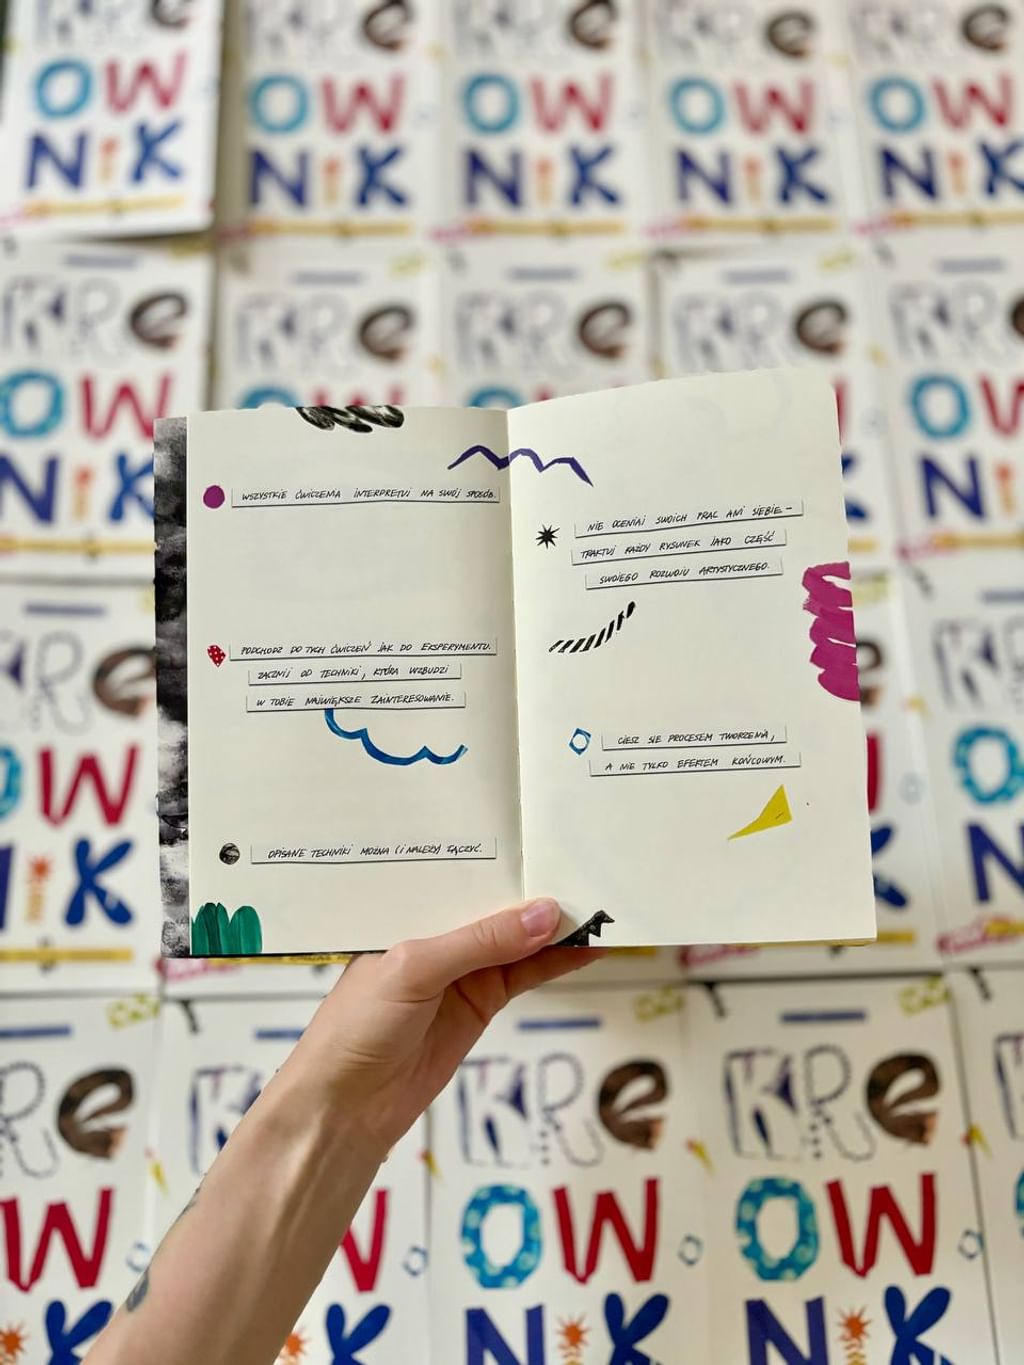 WSZYSTKIE ĆWICZENIA INTERPRETUJ NA SWÓJ SPOSÓB.
PODCHODŹ DO TYCH ĆWICZEŃ JAK DO EKSPERYMENTU.
ZACZNIJ OD TECHNIKI, KTÓRA WZBUDZI
W TOBIE NAJWIĘKSZE ZAINTERESOWANIE.
OPISANE TECHNIKI MOŻNA (I NALEŻY) ŁĄCZYĆ.
NIE OCENIAJ SWOICH PRAC ANI SIEBIE –
TRAKTUJ KAŻDY RYSUNEK JAKO CZĘŚĆ
SWOJEGO ROZWOJU ARTYSTYCZNEGO.
CIESZ SIĘ PROCESEM TWORZENIA,
A NIE TYLKO EFEKTEM KOŃCOWYM.
KRe
OW
NiK